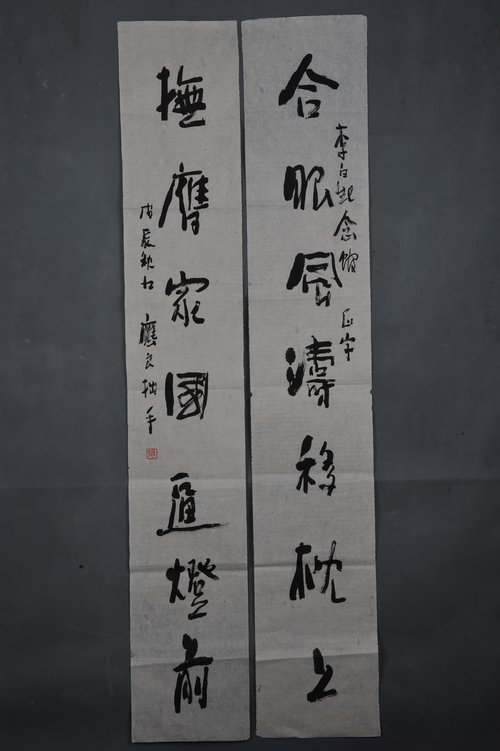 合眼風濤移枕上
李白紀念館 正字
撫膺家國逼燈前
丙辰秋
拙手